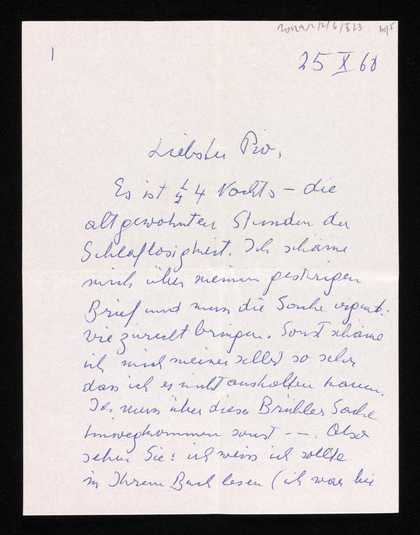 1
25 X 60
Liebster Pio,
Es ist ½ 4 Nachts – die
altgewohnten Stunden der
Schlaflosigkeit. Ich schäme
mich über meinen gestrigen
Brief und muss die Sache
zurecht bringen. Sonst schäme
ich mich meiner selbst so sehr
dass ich es nicht aushalten kann.
Ich muss über diese Sache
hinwegkommen sonst – –. Also
sehen Sie: ich weiss ich sollte
in Ihrem Buch lesen (ich war bei